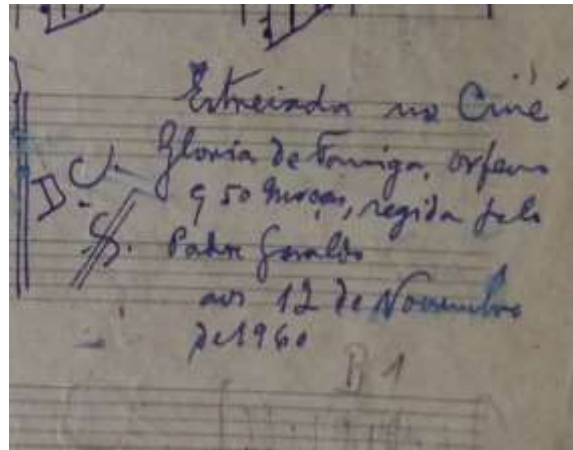 Estreiada no Cine
Gloria de Formiga, orfeão
50 moças, regida pelo
Padre Geraldo
aos 12 de Novembro
de 1960
D. C.
S.
B 1